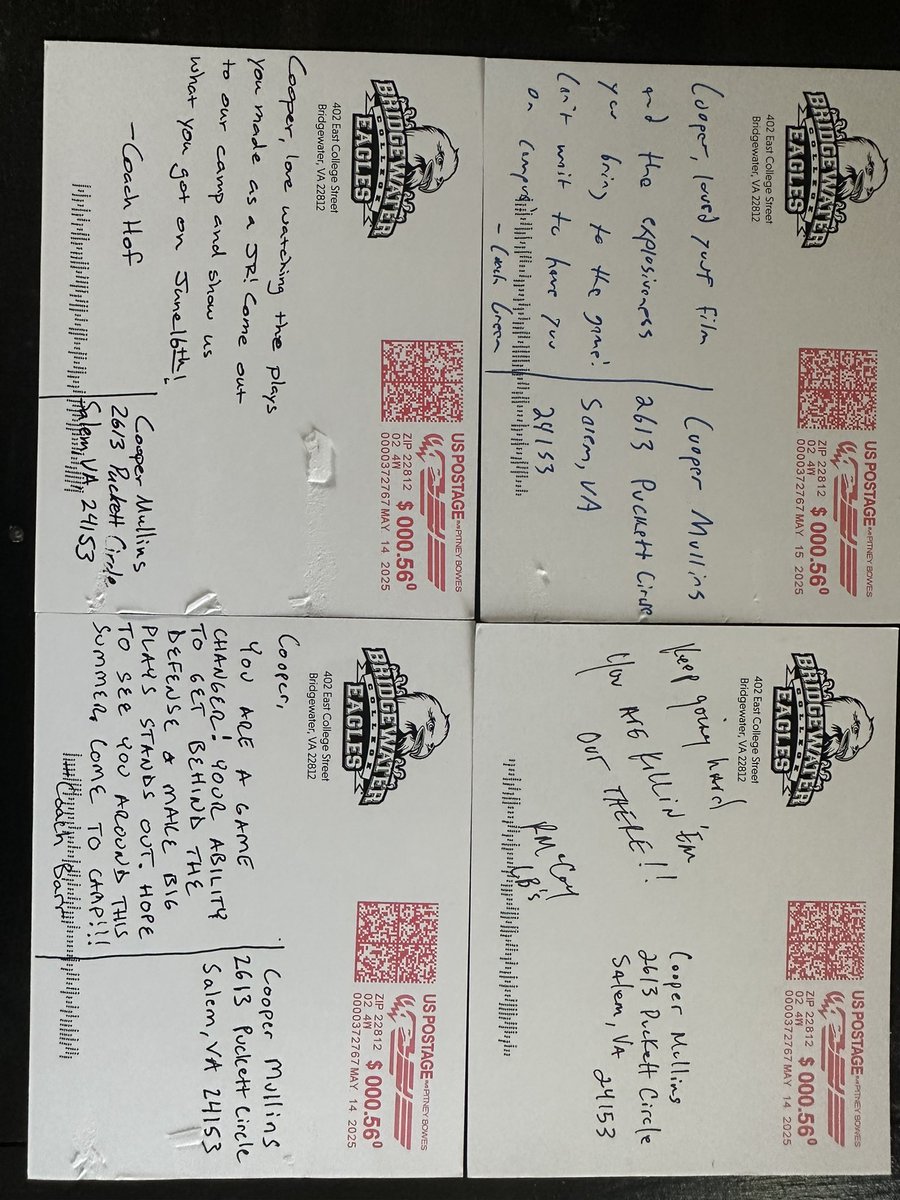 BRIDGEWATER
COLLEGE
EAGLES
402 East College Street
Bridgewater, VA 22812
US POSTAGE PAID PITNEY BOWES
ZIP 22812 $ 000.56⁰
02 4W
0000372767 MAY 15 2025
Cooper, loved your film
and the explosiveness
you bring to the game!
Can't wait to have you
on campus!
- Coach Green
Cooper Mullins
2613 Puckett Circle
Salem, VA
24153
BRIDGEWATER
COLLEGE
EAGLES
402 East College Street
Bridgewater, VA 22812
US POSTAGE PAID PITNEY BOWES
ZIP 22812 $ 000.56⁰
02 4W
0000372767 MAY 14 2025
Keep going hard!
You are Killin 'Em
OUT THERE!!
RMcCoy
LB's
Cooper Mullins
2613 Puckett Circle
Salem, VA 24153
BRIDGEWATER
COLLEGE
EAGLES
402 East College Street
Bridgewater, VA 22812
US POSTAGE PAID PITNEY BOWES
ZIP 22812 $ 000.56⁰
02 4W
0000372767 MAY 14 2025
Cooper, love watching the plays
you made as a JR! Come out
to our camp and show us
what you got on June 16th!
- Coach Hof
Cooper Mullins
2613 Puckett Circle
Salem, VA 24153
BRIDGEWATER
COLLEGE
EAGLES
402 East College Street
Bridgewater, VA 22812
US POSTAGE PAID PITNEY BOWES
ZIP 22812 $ 000.56⁰
02 4W
0000372767 MAY 14 2025
Cooper,
YOU ARE A GAME
CHANGER! YOUR ABILITY
TO GET BEHIND THE
DEFENSE & MAKE BIG
PLAYS STANDS OUT. HOPE
TO SEE YOU AROUND THIS
SUMMER, COME TO CAMP!!!
Coach Barr
Cooper Mullins
2613 Puckett Circle
Salem, VA 24153